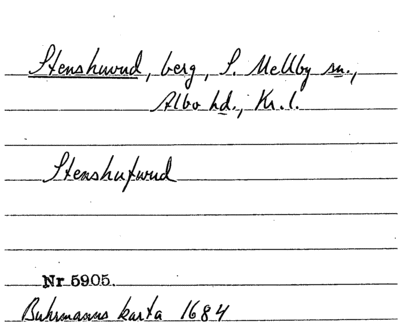 Stenshuvud, berg, S. Mellby sn.,
Albo hd., Kr. l.
Stenshufwud
Nr 5905.
Buhrmanns karta 1684